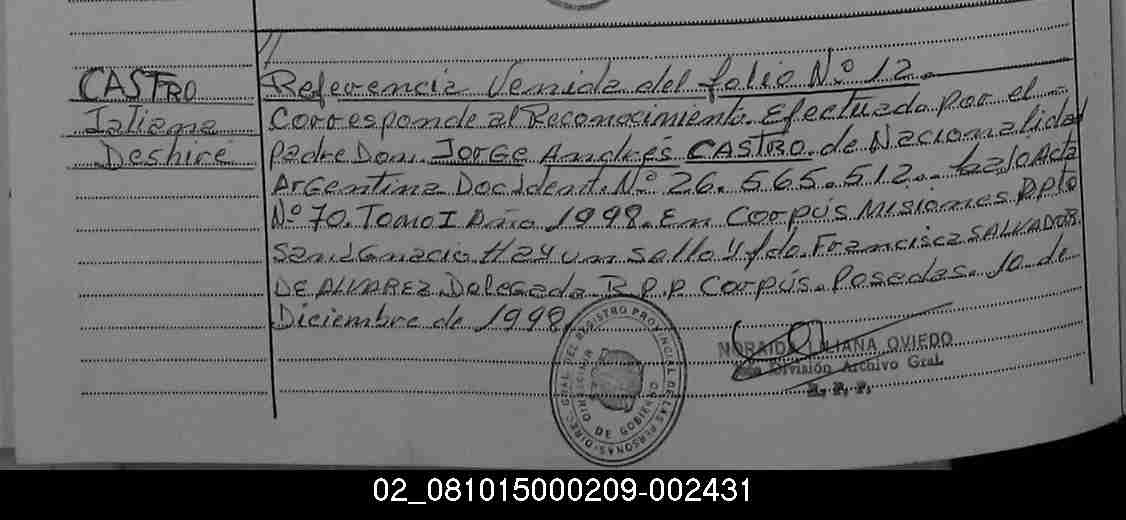 CASTRO
Tatiana
Deshiré
Referencia Venida del folio N.º 12.
Corresponde al Reconocimiento. Efectuado por el
Padre Don. Jorge Andrés CASTRO. de Nacionalidad
Argentina Doc. Ident. Nº 26.565.512. bajo Acta
Nº 70. Tomo I Año 1998. En Corpus Misiones Dpto
San Ignacio Hay un sello y fdo. Francisca SALVADOR
DE ALVAREZ Delegada R.P.P Corpús. Posadas. 10 de
Diciembre de 1998
DIREC. GRAL. DEL REGISTRO PROVINCIAL DE LAS PERSONAS
DIRECCION DE GOBIERNO
NORAIDA LILIANA OVIEDO
División Archivo Gral.
R. P. P.
02_081015000209-002431